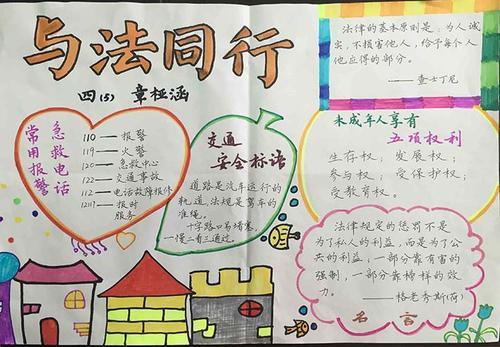 与法同行
四(5) 章桠涵
常用报警
急救电话
110——报警
119——火警
120——急救中心
122——交通事故
112——电话故障报修
12117——报时
服务
交通
安全标语
道路是汽车运行的
轨道,法规是驾车的
准绳。
十字路口易堵塞,
一慢二看三通过。
法律的基本原则是:为人诚
实,不损害他人,给予每个人
他应得的部分。
——查士丁尼
未成年人享有
五项权利
生存权; 发展权;
参与权; 受保护权;
受教育权。
法律规定的惩罚不是
为了私人的利益,而是为了公
共的利益;一部分靠有害的
强制,一部分靠榜样的效
力。
——格老秀斯(荷)
名言